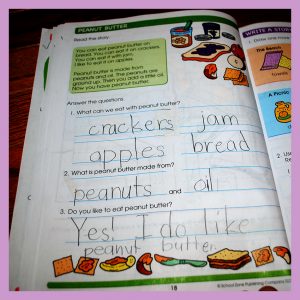 PEANUT BUTTER
Read the story.
You can eat peanut butter on
bread. You can eat it on crackers.
You can eat it with jam.
I like to eat it on apples.
Peanut butter is made from
peanuts and oil. The peanuts are
ground up. Then you add a little oil.
Now you have peanut butter.
Answer the questions.
1. What can we eat with peanut butter?
crackers jam
apples bread
2. What is peanut butter made from?
peanuts and oil
3. Do you like to eat peanut butter?
Yes! I do like
peanut butter
18
© School Zone Publishing Company
WRITE A STORY
The Bench
A Picnic